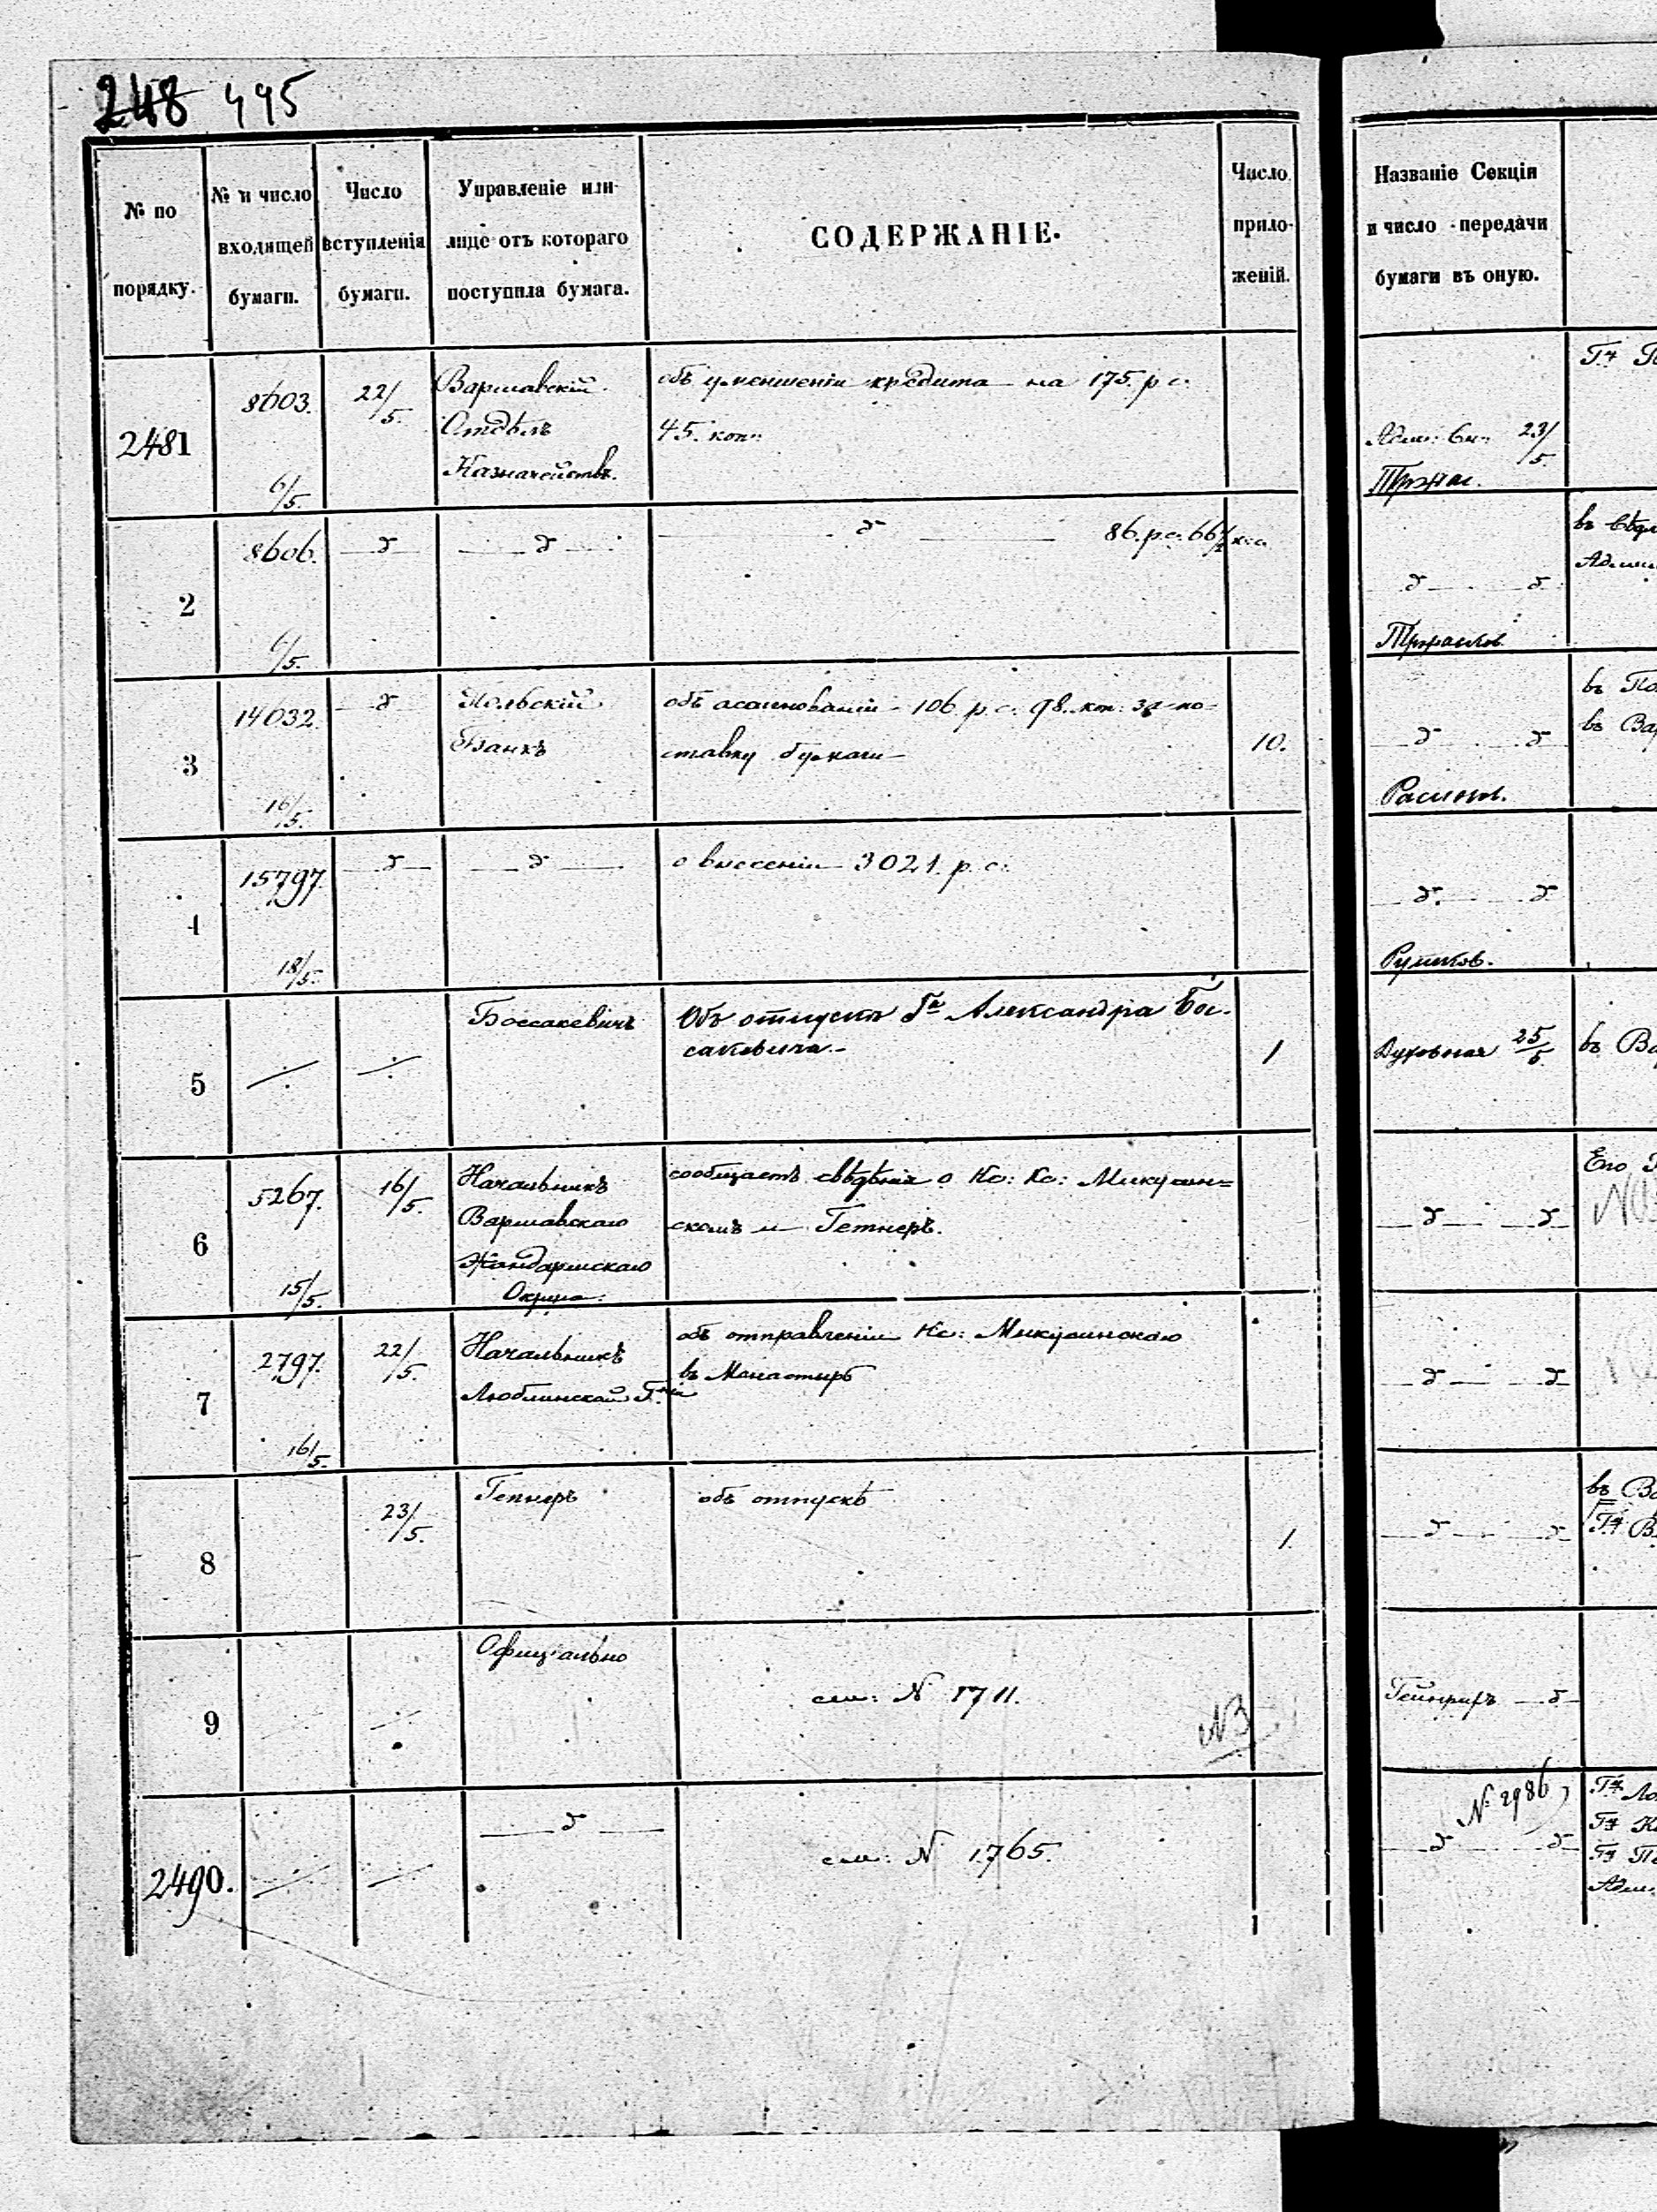 248 495
№ по порядку.
№ и число входящей бумаги.
Число вступленія бумаги.
Управленіе или лице отъ котораго поступила бумага.
СОДЕРЖАНІЕ.
Число приложеній.
Названіе Секціи и число передачи бумаги въ оную.
2481
8603.
6/5.
22/5.
Варшавскій
Отдѣлъ
Казначействъ.
объ уменьшеніи кредита на 175. р с.
45. коп:
23/5.
2
8606.
6/5.
86. р. с. 66½ к. с.
3
14032.
16/5.
Польскій
Банкъ
объ асигнованіи 106 р. с. 98. коп: за по-
ставку бумаги
10.
въ
въ
4
15797.
18/5.
о внесеніи 3021. р. с.
5
Боссакевичъ
Объ отпускѣ Гна Александра Бос-
сакевича.
1
Духовная 25/5.
въ
6
5267.
15/5.
16/5.
Начальникъ
Варшавскаго
Жандармскаго
Округа.
сообщаетъ свѣдѣнія о Кс: Кс: Микусин=
скомъ и Гепнеръ.
Его
7
2797.
16/5.
22/5.
Начальникъ
Люблинской
объ отправленіи Кс: Микусинскаго
въ Монастырь
8
23/5.
Гепнеръ
объ отпускѣ
1.
въ
9
Офиціально
см: № 1711.
NB
Гейнрихъ
2490.
см: № 1765.
№ 2986